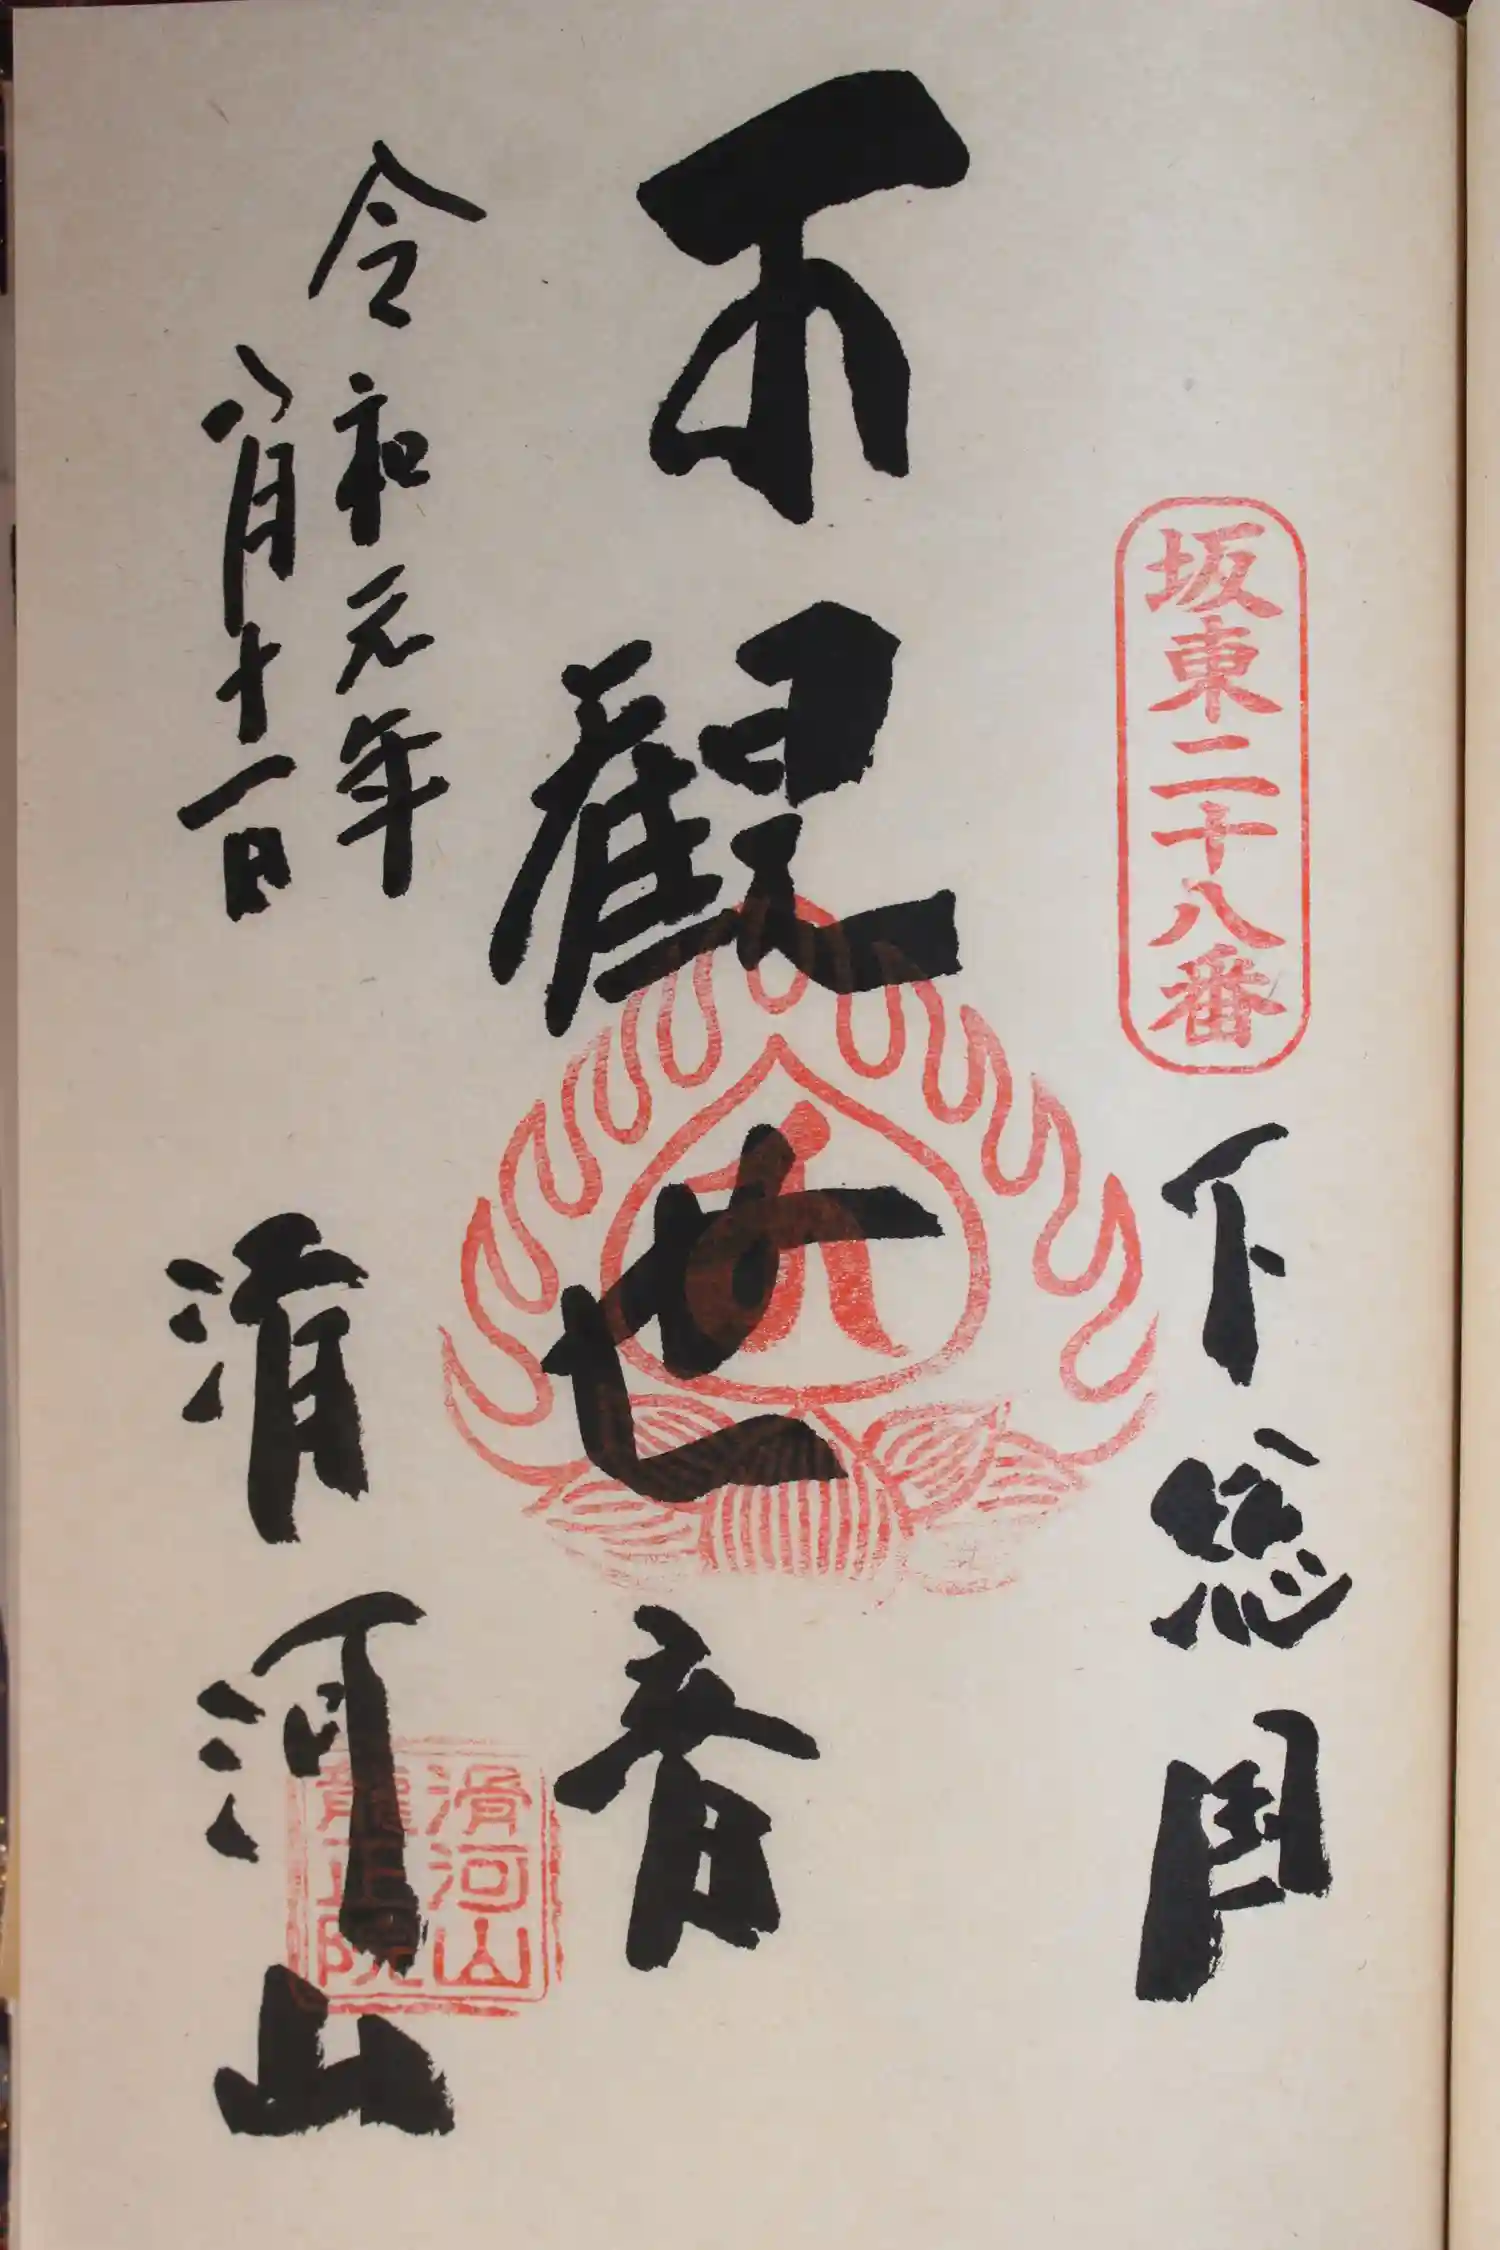 坂東二十八番
下総国
不觀世音
令和元年
八月十一日
滑河山
滑河山
龍正院